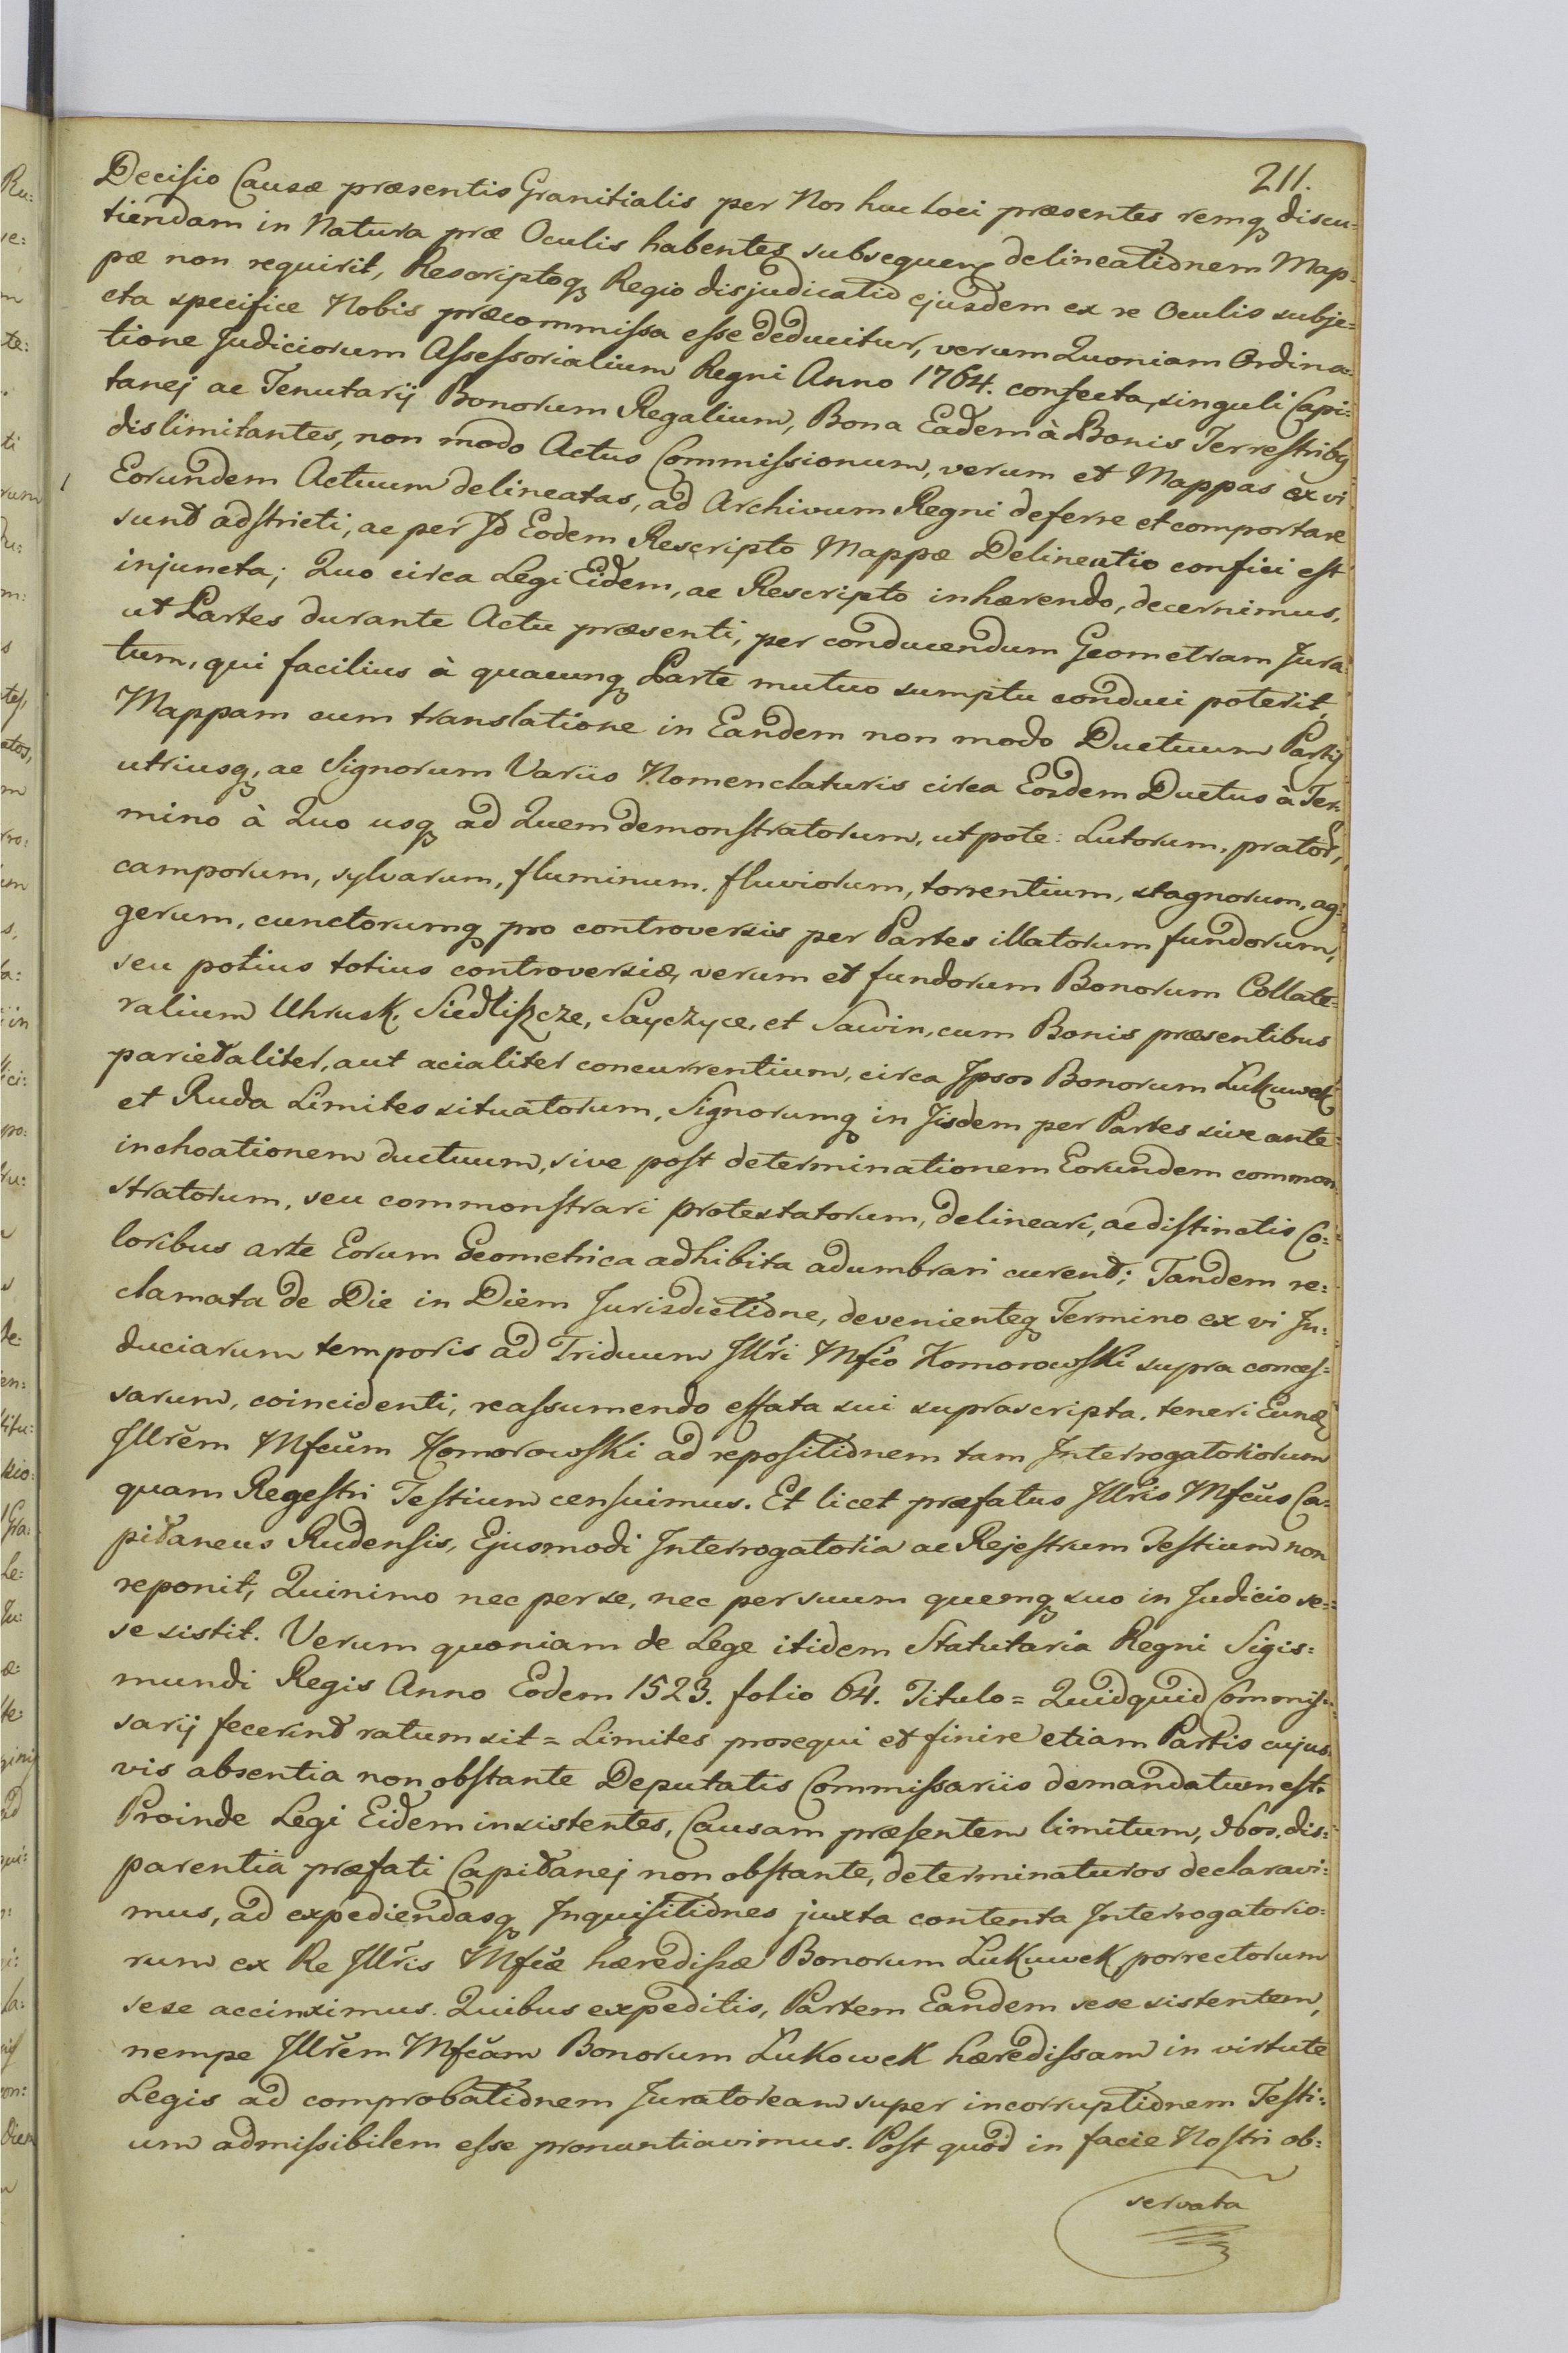 211.
Decisio Causæ præsentis Granitialis per Nos huc Loci præsentes remq discu=
tiendam in Natura præ Oculis habentes subsequen delineationem Map=
pæ non requirit, Rescriptoq Regio disjudicatio ejusdem ex re Oculis subje=
cta specifice Nobis præcommissa esse deducitur, verum Quoniam Ordina=
tione Judiciorum Assessorialium Regni Anno 1764. confecta, singuli Capi=
tanej ac Tenutarij Bonorum Regalium, Bona Eadem à Bonis Terrestribq
dislimitantes, non modo Actus Commissionum, verum et Mappas ex vi
Eorundem Actuum delineatas, ad Archivum Regni deferre et comportare
sunt adstricti, ac per Id Eodem Rescripto Mappæ Delineatio confici est
injuncta; Quo circa Legi Eidem, ac Rescripto inhærendo, decernimus,
ut Partes durante Actu præsenti, per conducendum Geometram Jura=
tum, qui facilius à quacunq Parte mutuo sumptu conduci poterit,
Mappam cum translatione in Eandem non modo Ductuum Partis
utriusq, ac Signorum Variis Nomenclaturis circa Eosdem Ductus à Ter=
mino à Quo usq ad Quem demonstratorum, utpote: Lutorum, prator,
camporum, sylvarum, fluminum, fluviorum, torrentium, stagnorum, ag=
gerum, cunctorumq pro controversis per Partes illatorum fundorum,
seu potius totius controversiæ, verum et fundorum Bonorum Collate=
ralium Uhrusk, Siedliszcze, Sayczyce, et Sawin, cum Bonis præsentibus
parietaliter, aut acialiter concurrentium, circa Ipsos Bonorum Lukuwek
et Ruda Limites situatorum, Signorumq in Iisdem per Partes sive ante
inchoationem ductuum, sive post determinationem Eorundem common=
stratorum, seu commonstrari protestatorum, delineari, ac distinctis Co=
loribus arte Eorum Geometrica adhibita adumbrari curent; Tandem re=
clamata de Die in Diem Jurisdictione, devenienteq Termino ex vi In=
duciarum temporis ad Triduum Illri Mfco Komorowski supra conces=
sarum, coincidenti, reassumendo effata sui suprascripta, teneri Eund
Illrem Mfcum Komorowski ad repositionem tam Interrogatoriorum
quam Regestri Testium censuimus. Et licet præfatus Illris Mfcus Ca=
pitaneus Rudensis, Ejusmodi Interrogatoria ac Rejestrum Testium non
reponit, Quinimo nec per se, nec per suum quemq suo in Judicio se=
se sistit. Verum quoniam de Lege itidem Statutaria Regni Sigis=
mundi Regis Anno Eodem 1523. folio 64. Titulo = Quidquid Commis=
sarij fecerint ratum sit = Limites prosequi et finire etiam Partis cujus=
vis absentia non obstante Deputatis Commissariis demandatum est.
Proinde Legi Eidem insistentes, Causam præsentem limitum, Nos, dis=
parentia præfati Capitanej non obstante, determinaturos declaravi=
mus, ad expediendasq Inquisitiones juxta contenta Interrogatorio=
rum ex Re Illris Mfcæ hæredissæ Bonorum Lukuwek porrectorum
sese accinximus. Quibus expeditis, Partem Eandem sese sistentem,
nempe Illrem Mfcam Bonorum Lukowek hæredissam in virtute
Legis ad comprobationem Juratoream super incorruptionem Testi=
um admissibilem esse pronuntiavimus. Post quod in facie Nostri ob=
servata